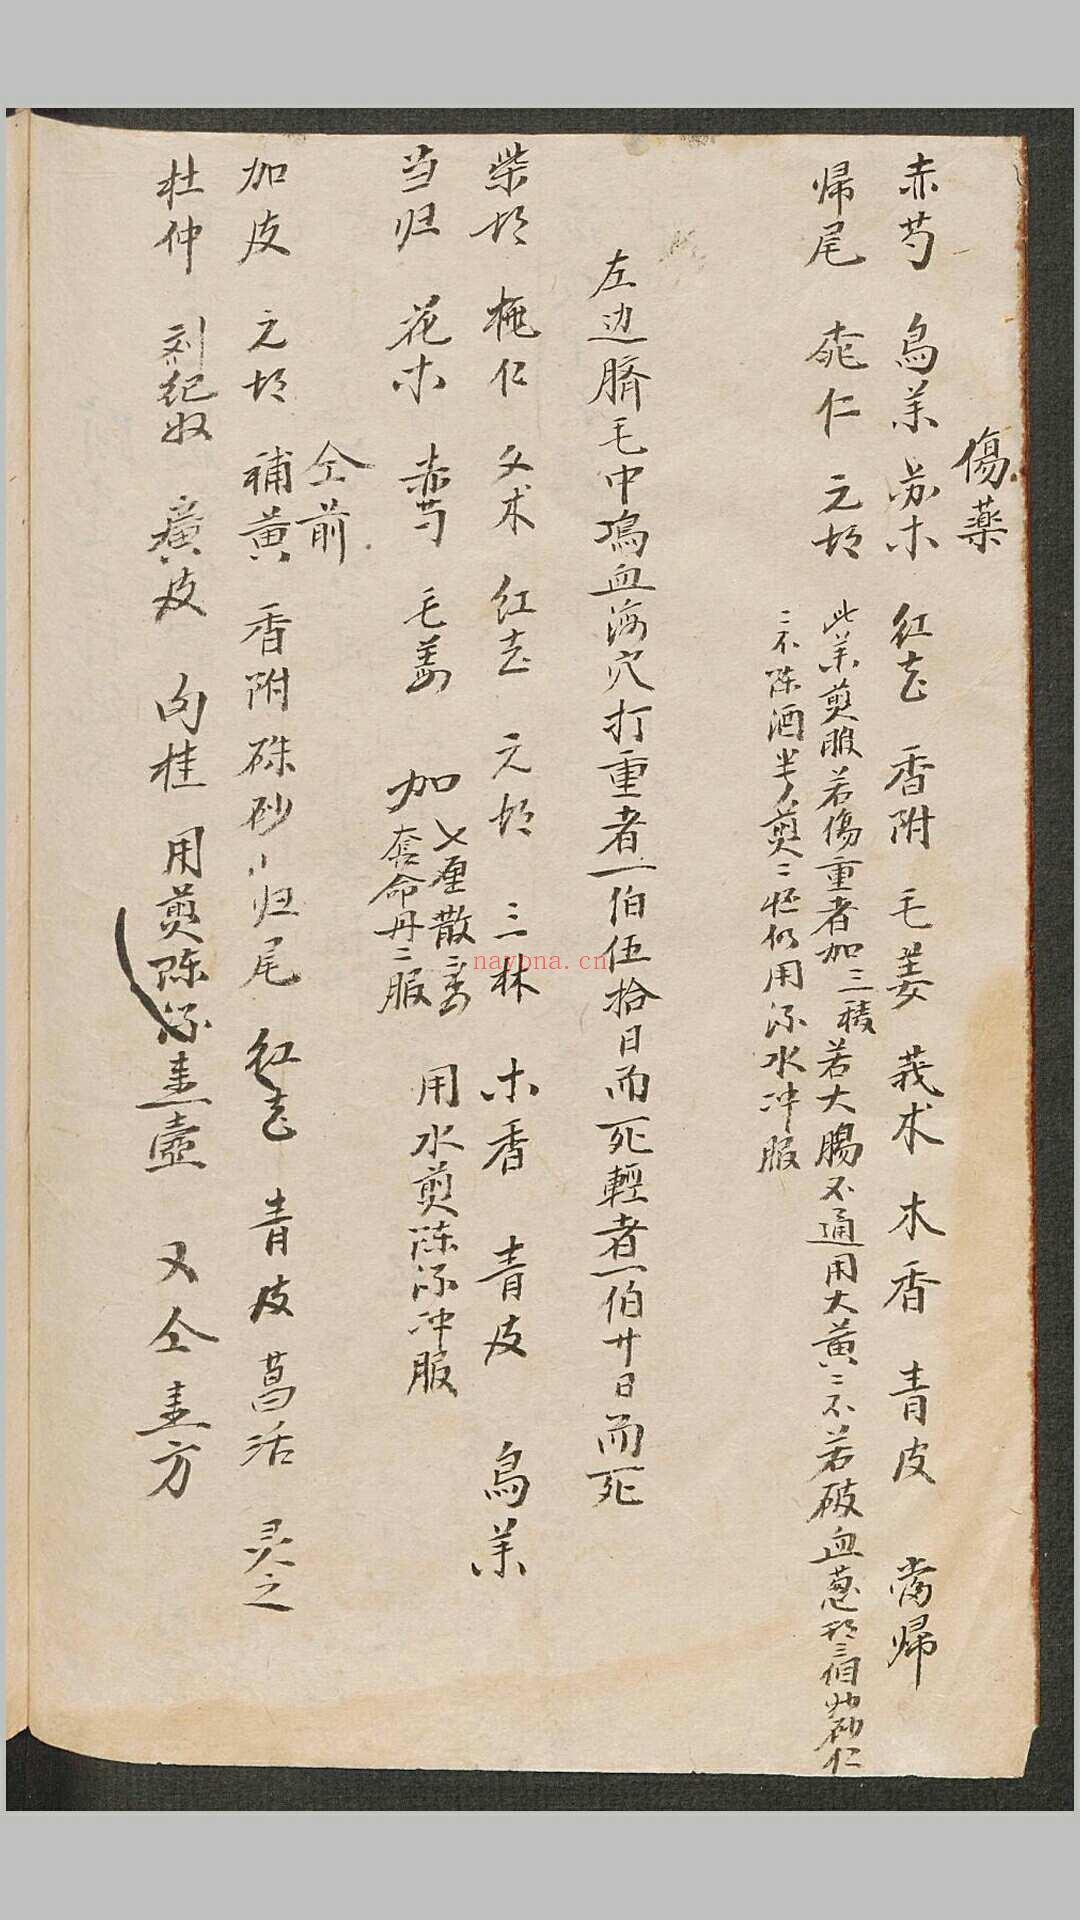 傷藥
赤芍 烏羊 苏木 红花 香附 毛姜 莪术 木香 青皮 當歸
帰尾 桃仁 元胡
此羊煎服若傷重者加三稜若大腸不通用大黄二不若破血葱 砂仁
三不陈酒半煎 仍用 水冲服
左边臍毛中 血海穴打重者一伯伍拾日而死輕者一伯廿日而死
柴胡 桃仁 文术 红花 元胡 三林 木香 青皮 烏羊
当归 花木 赤芍 毛姜 加 七厘散 用水煎陈 冲服
套命丹二服
仝前
加皮 元胡 補黄 香附 硃砂 归尾 红花 青皮 葛活 灵之
杜仲 刘纪奴 廣皮 向桂 用煎陈 壶 又仝 方
nayona.cn